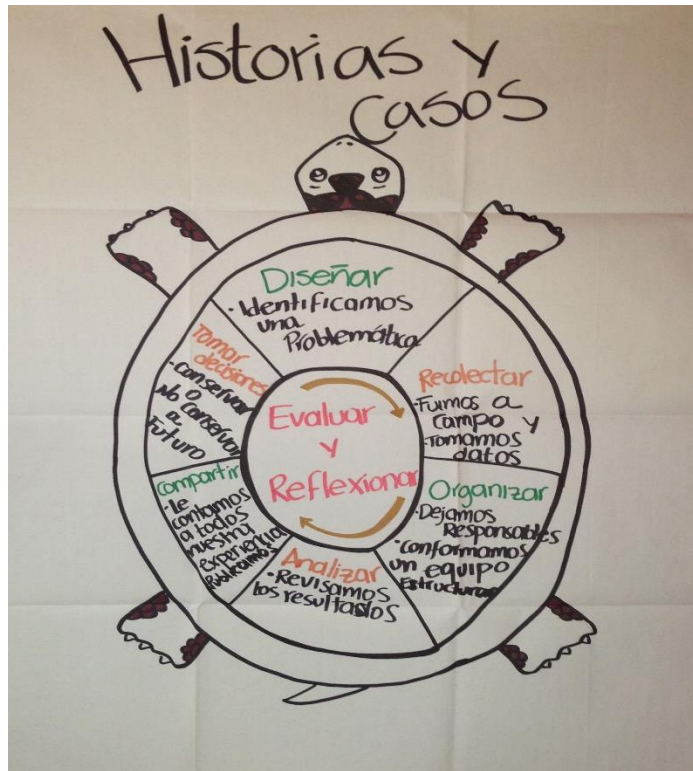 Historias y
Casos
Diseñar
· Identificamos
una
Problemática
Recolectar
· Fuimos a
campo y
· Tomamos
datos
Organizar
· Dejamos
Responsables
· Conformamos
un equipo
Estructurar
Analizar
· Revisamos
los resultados
Compartir
· Le
contamos
a todos
nuestra
experiencia
Publicamos
Tomar
decisiones
· Conservar
o
No conservar
a
Futuro
Evaluar
y
Reflexionar